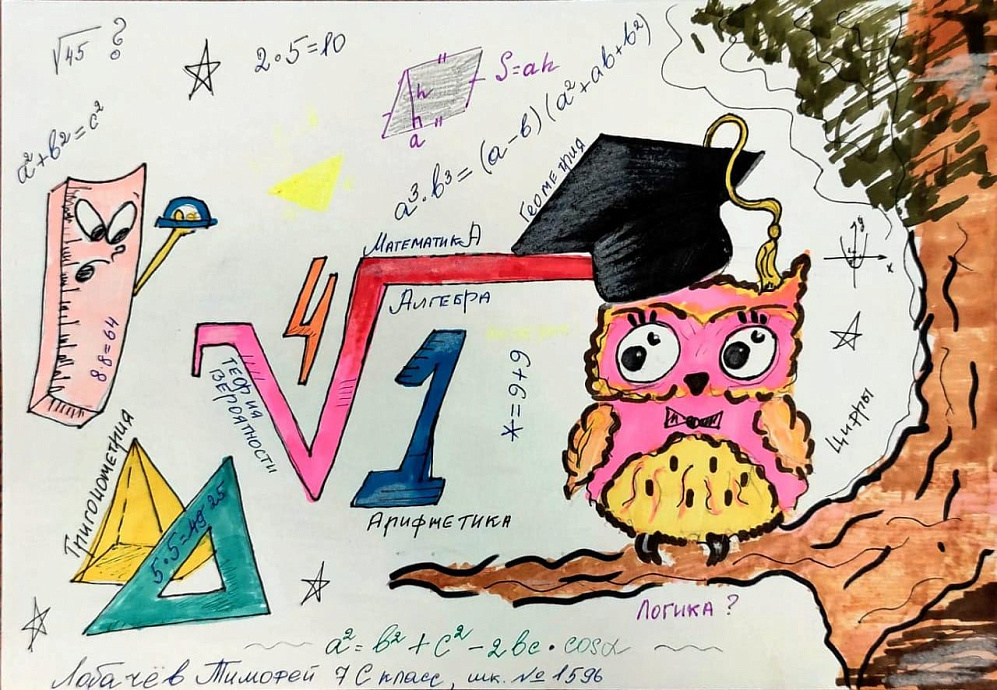 √45 ?
2∘5=10
S=ah
h
a
a²+b²=c²
a³·b³=(a-b)(a²+ab+b²)
Геометрия
МатематикА
Алгебра
4
√1
8·8=64
Теория
вероятности
6+6=*
y
x
Цифры
Тригонометрия
5·5=49 25
Арифметика
Логика?
a²=b²+c²-2bc·cosα
Лобачёв Тимофей 7С класс, шк. №1596